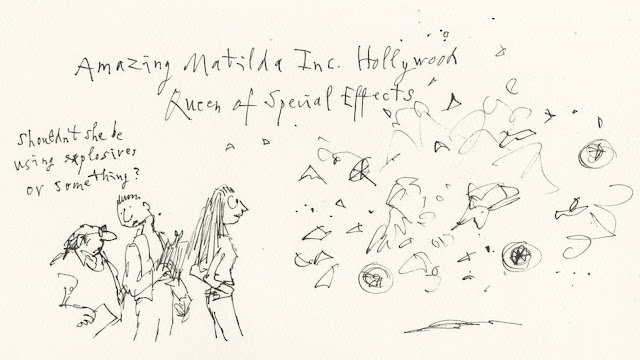 Amazing Matilda Inc. Hollywood
Queen of Special Effects
Shouldn't she be
using explosives
or something?